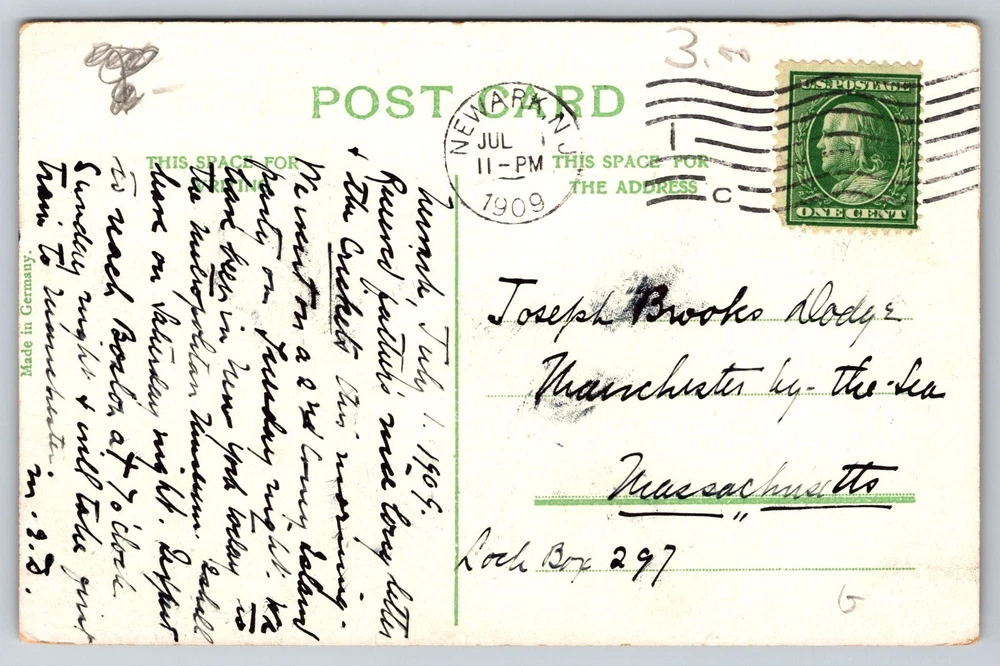 3.00
POST CARD
NEWARK, N.J.
JUL 1
11-PM
1909
1
C
U.S. POSTAGE
ONE CENT
THIS SPACE FOR
WRITING
THIS SPACE FOR
THE ADDRESS
Made in Germany.
Newark, July 1. 1909.
Received father's nice long letter
+ the Cricket this morning-
We went on a 2nd Coney Island
party on Tuesday night. We
have been in New York today to
the Metropolitan Museum. Shall
leave on Saturday night. Expect
to reach Boston at 7 o'clock
Sunday night + will take first
train to Manchester.
Joseph Brooks Dodge
Manchester by-the-Sea
Massachusetts
Lock Box 297
6